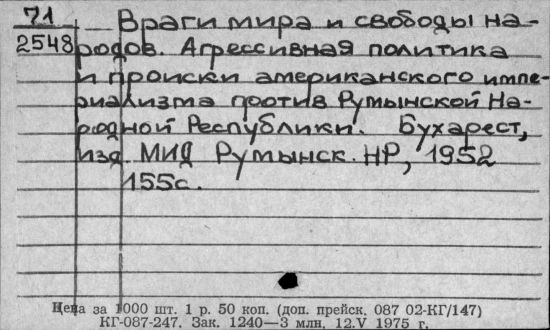 71
2548
Враги мира и свободы на-
родов. Агрессивная политика
и происки американского импе-
риализма против Румынской На-
родной Республики. Бухарест,
изд. МИД Румынск. НР, 1952
155с.
Цена за 1000 шт. 1 р. 50 коп. (доп. прейск. 087 02-КГ/147)
КГ-087-247. Зак. 1240—3 млн. 12.V 1975 г.